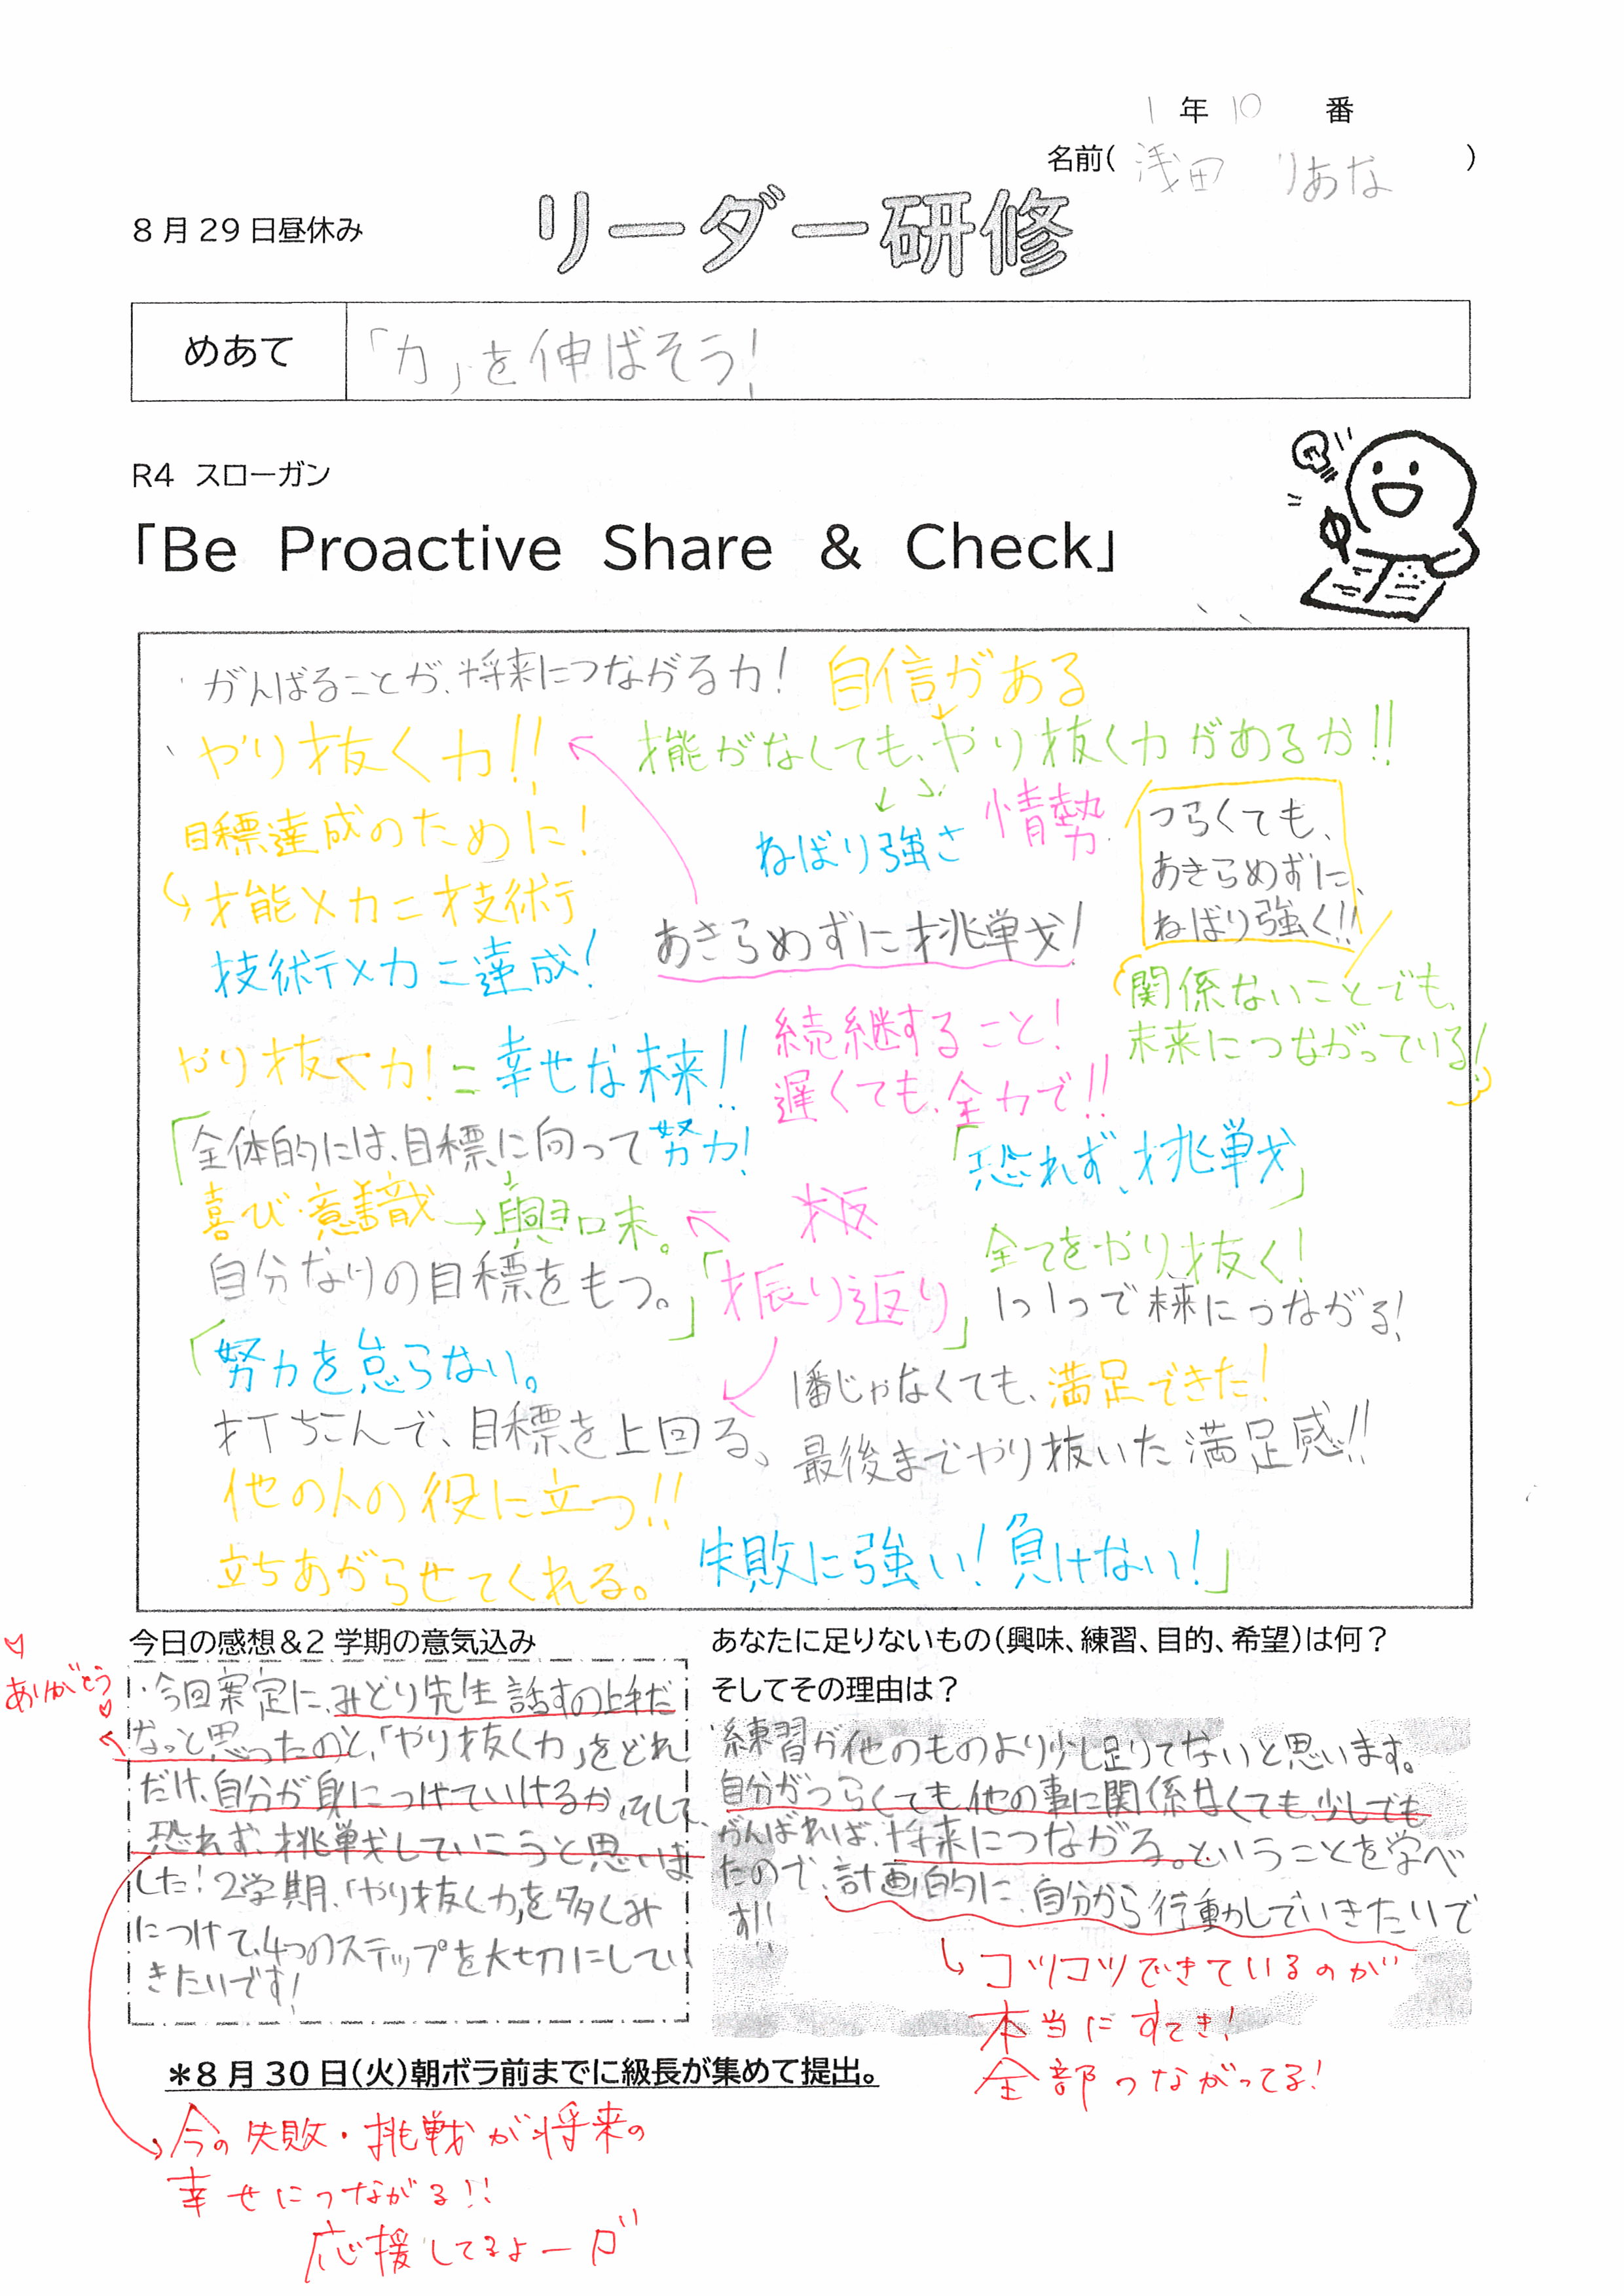 1年10番
名前(浅田 りあな)
8月29日昼休み
リーダー研修
めあて
「力」を伸ばそう！
R4 スローガン
「Be Proactive Share & Check」
がんばることが、将来につながる力！
自信がある
やり抜く力!!
才能がなくても、やり抜く力があるか!!
目標達成のために！
ねばり強さ
情勢
つらくても、
あきらめずに、
ねばり強く!!
才能×力=技術
あきらめずに挑戦！
技術×力=達成！
関係ないことでも、
未来につながっている！
やり抜く力！=幸せな未来!!
続継すること！
遅くても、全力で!!
「全体的には、目標に向って努力！
「恐れず、挑戦」
喜び・意識→興味。
自分なりの目標をもつ。」
「振り返り」
全てをやり抜く！
1つ1つで未来につながる！
「努力を怠らない。
1番じゃなくても、満足できた！
打ちこんで、目標を上回る、
最後までやり抜いた満足感!!
他の人の役に立つ!!
立ちあがらせてくれる。
失敗に強い！負けない！」
今日の感想&2学期の意気込み
ありがとう
・今回案定に、みどり先生話すの上手だ
なっと思ったのと、「やり抜く力」をどれ
だけ、自分が身につけていけるか、そして、
恐れず、挑戦していこうと思いま
した！2学期、「やり抜く力」を多くみ
につけて、4つのステップを大切にしてい
きたいです！
あなたに足りないもの(興味、練習、目的、希望)は何？
そしてその理由は？
練習が他のものより少し足りてないと思います。
自分がつらくても、他の事に関係なくても、少しでも
がんばれば、将来につながる。ということを学べ
たので、計画的に、自分から行動していきたいで
す!!
コツコツできているのが
本当にすてき！
全部つながってる！
＊8月30日(火)朝ボラ前までに級長が集めて提出。
今の失敗・挑戦が将来の
幸せにつながる!!
応援してるよー